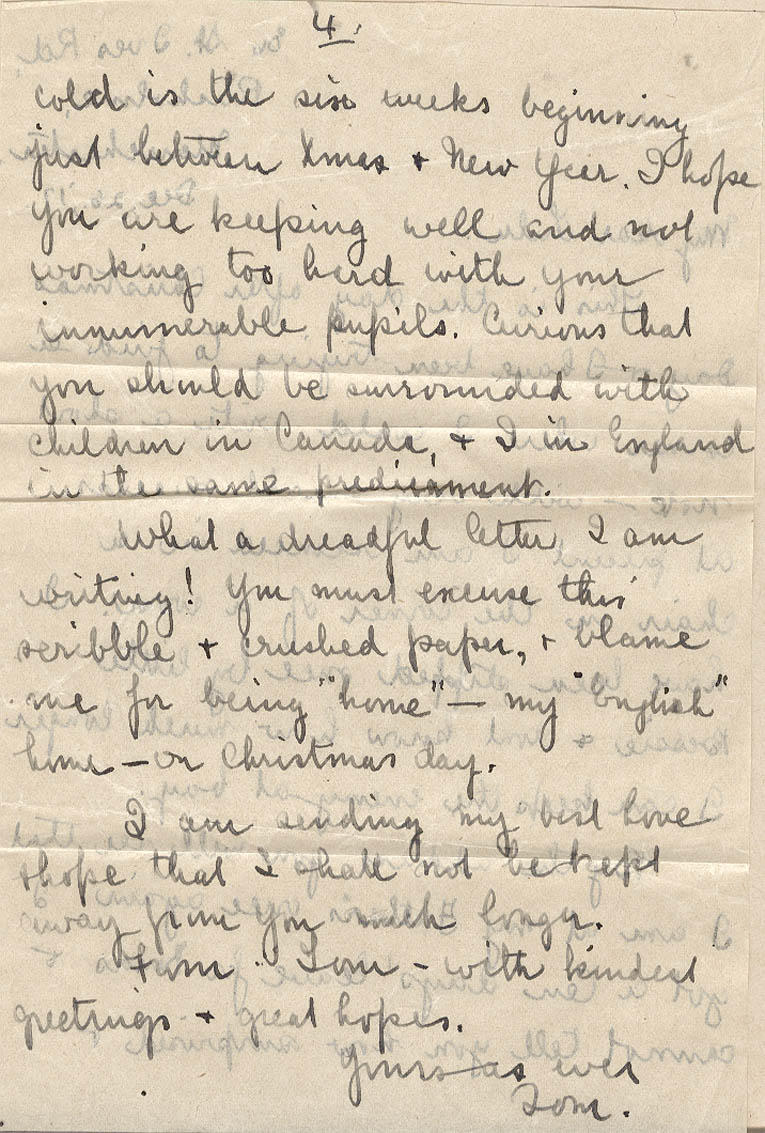 4.
cold is the six weeks beginning
just between Xmas + New Year. I hope
you are keeping well and not
working too hard with your
innumerable pupils. Curious that
you should be surrounded with
children in Canada, + I in England
in the same predicament.
What a dreadful letter I am
writing! You must excuse this
scribble + crushed paper, + blame
me for being "home" — my "English"
home — on Christmas day.
I am sending my best love
+ hope that I shall not be kept
away from you much longer.
From Tom - with kindest
greetings + great hopes.
Yours as ever
Tom.